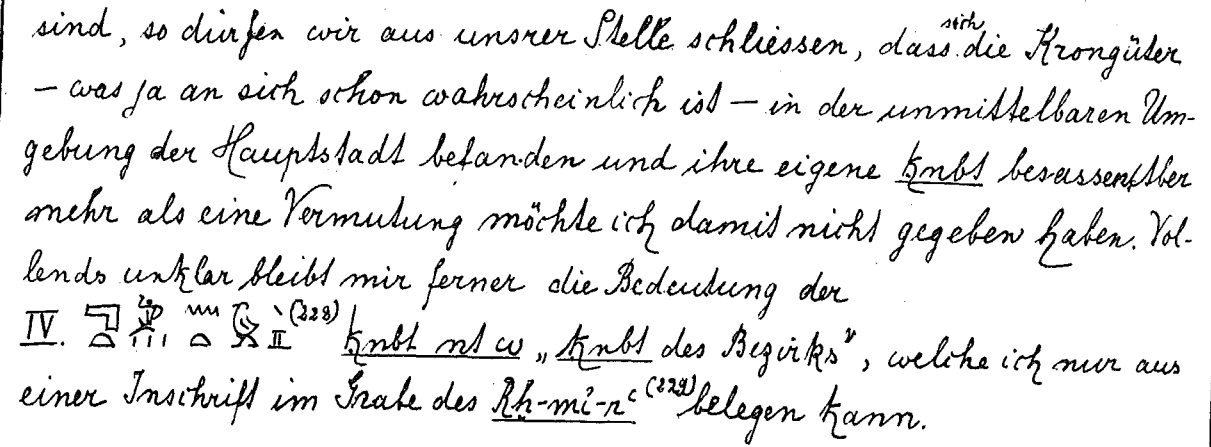 sind, so dürfen wir aus unsrer Stelle schliessen, dass sich die Krongüter
– was ja an sich schon wahrscheinlich ist – in der unmittelbaren Um-
gebung der Hauptstadt befanden und ihre eigene knbt besassen. Aber
mehr als eine Vermutung möchte ich damit nicht gegeben haben. Vol-
lends unklar bleibt mir ferner die Bedeutung der
IV. (228) knbt nt w „knbt des Bezirks", welche ich nur aus
einer Inschrift im Grabe des Rḫ-mi-rʿ (229) belegen kann.